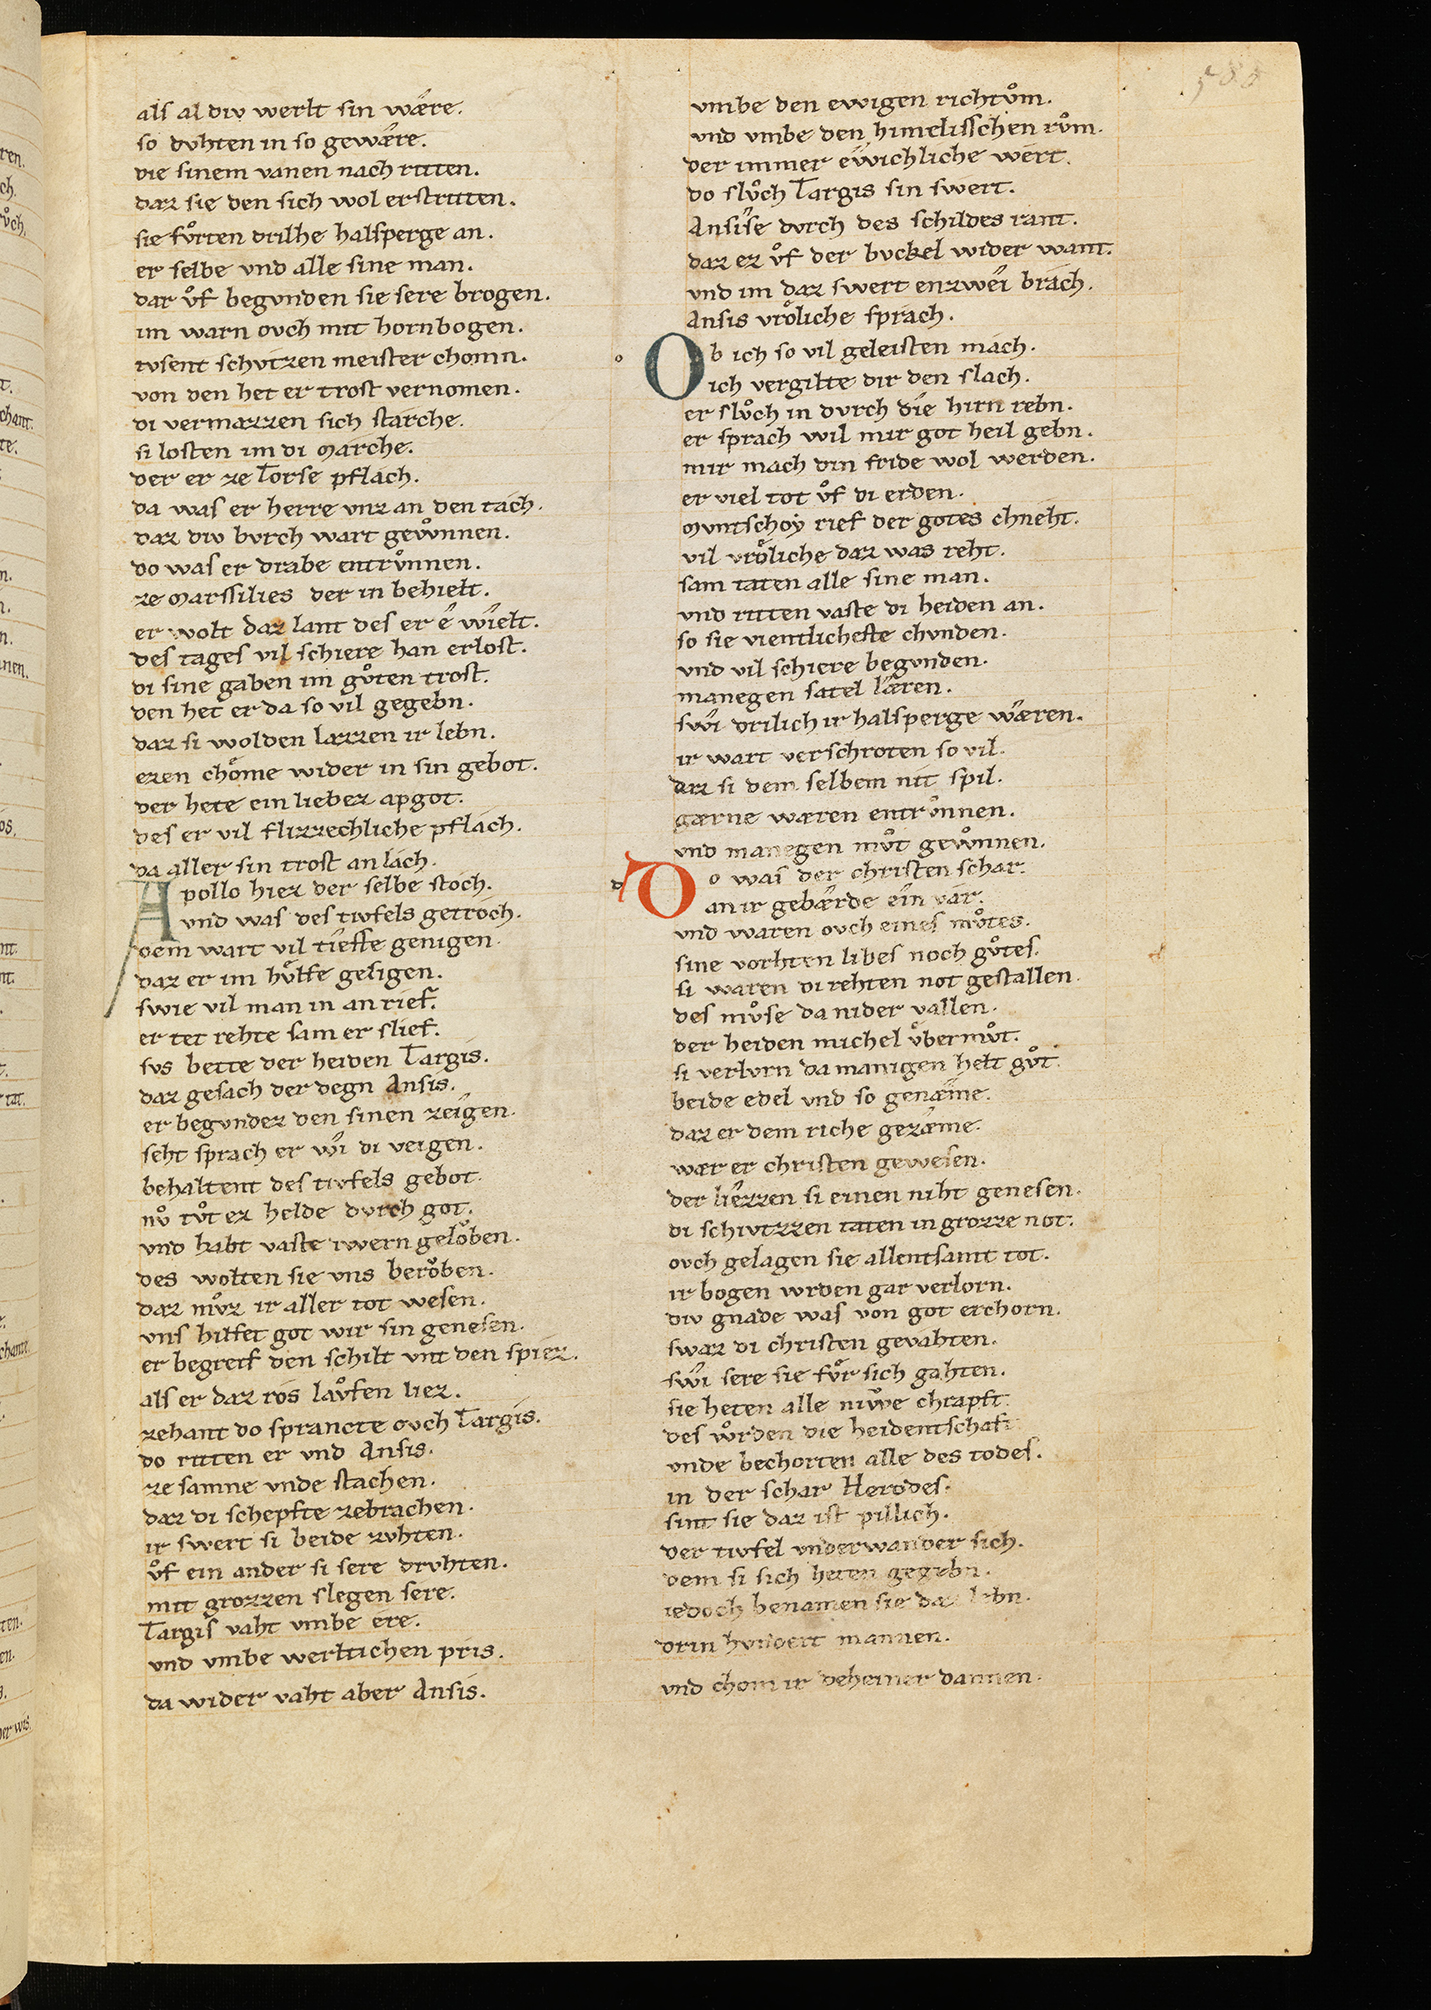 als al div werlt sin wære.
so duhten in so gewære.
die sinem vanen nach ritten.
daz sie den sich wol erstritten.
sie fůrten drilhe halsperge an.
er selbe vnd alle sine man.
dar ůf begvnden sie sere brogen.
im warn ovch mit hornbogen.
tvsent schvtzen meister chomn.
von den het er trost vernomen.
di vermazzen sich starche.
si losten im di marche.
der er ze Torse pflach.
da was er herre vnz an den tach.
daz div bvrch wart gewůnnen.
do was er drabe entrůnnen.
ze marssilies der in behielt.
er wolt daz lant des er e wielt.
des tages vil schiere han erlost.
di sine gaben im gůten trost.
den het er da so vil gegebn.
daz si wolden lazzen ir lebn.
ezen chŏme wider in sin gebot.
der hete ein lieber apgot.
des er vil flizzechliche pflach.
da aller sin trost an lach.
Apollo hiez der selbe stoch.
vnd was des tivfels getroch.
dem wart vil tieffe genigen.
daz er im hůlfe gesigen.
swie vil man in an rief.
er tet rehte sam er slief.
svs bette der heiden Targis.
daz gesach der degn Ansis.
er begvndez den sinen zeigen.
seht sprach er wi di veigen.
behaltent des tivfels gebot.
nů tůt ez helde dvrch got.
vnd habt vaste iwern gelŏben.
des wolten sie vns berŏben.
daz můz ir aller tot wesen.
vns hilfet got wir sin genesen.
er begreif den schilt vnt den spiez.
als er daz ros lăvfen liez.
zehant do sprancte ovch Targis.
do ritten er vnd Ansis.
ze samne vnde stachen.
daz di schefte zebrachen.
ir swert si beide zvhten.
ůf ein ander si sere drvhten.
mit grozzen slegen sere.
Targis vaht vmbe ere.
vnd vmbe werltlichen pris.
da wider vaht aber Ansis.
vmbe den ewigen richtům.
vnd vmbe den himelisschen rům.
der immer ewichliche wert.
do slůch Targis sin swert.
Ansise dvrch des schildes rant.
daz ez ůf der bvckel wider want.
vnd im daz swert enzwei brach.
Ansis vrŏliche sprach.
Ob ich so vil geleisten mach.
ich vergilte dir den slach.
er slůch in dvrch die hirn rebn.
er sprach wil mir got heil gebn.
mir mach din fride wol werden.
er viel tot ůf di erden.
mvntschoy rief der gotes chneht.
vil vrŏliche daz was reht.
sam taten alle sine man.
vnd ritten vaste di heiden an.
so sie vientlicheste chvnden.
vnd vil schiere begvnden.
manegen satel læren.
swi drilich ir halsperge wæren.
ir wart verschroten so vil.
daz si dem selbem nit spil.
gærne wæren entrůnnen.
vnd manegen můt gewůnnen.
d
Do was der christen schar.
an ir gebærde ein var.
vnd waren ovch eines můtes.
sine vorhten libes noch gůtes.
si waren di rehten not gestallen.
des můse da nider vallen.
der heiden michel ůbermůt.
si verlvrn da manigen helt gůt.
beide edel vnd so genæme.
daz er dem riche gezæme.
wær er christen gewesen.
der liezzen si einen niht genesen.
di schivtzzen taten in grozze not.
ovch gelagen sie allentsamt tot.
ir bogen wrden gar verlorn.
div gnade was von got erchorn.
swaz di christen gevahten.
swi sere sie fůr sich gahten.
sie heten alle niwe chrapft
des wůrden die heidentschaft
vnde bechorten alle des todes.
in der schar Herodes.
sint sie daz ist pillich.
der tivfel vnderwander sich.
dem si sich heten gegebn.
iedoch benamen sie daz lebn.
drin hvndert mannen.
vnd chom ir deheiner dannen.